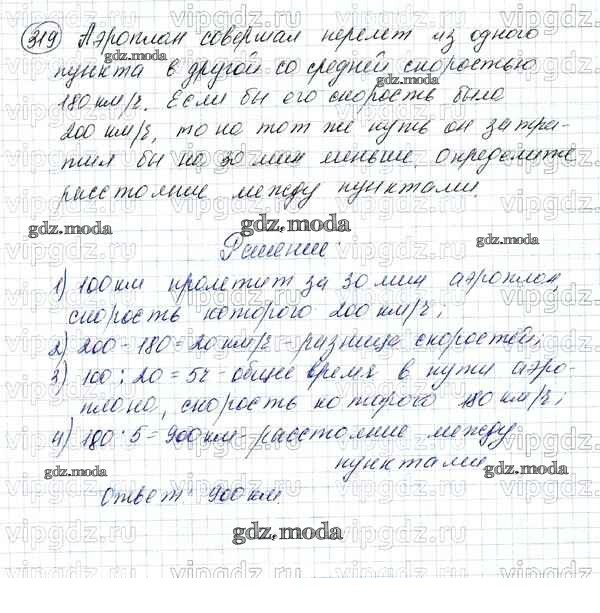 319 Аэроплан совершал перелет из одного
пункта в другой со средней скоростью
180 км/ч. Если бы его скорость была
200 км/ч, то на тот же путь он затра-
тил бы на 30 мин меньше. Определите
расстояние между пунктами.
Решение:
1) 100 км пролетит за 30 мин аэроплан,
скорость которого 200 км/ч;
2) 200 - 180 = 20 км/ч - разница скоростей;
3) 100 : 20 = 5 ч - общее время в пути аэро-
плана, скорость которого 180 км/ч;
4) 180 · 5 = 900 км - расстояние между
пунктами.
Ответ: 900 км.
gdz.moda
gdz.moda
gdz.moda
gdz.moda
gdz.moda
gdz.moda
gdz.moda
gdz.moda
gdz.moda
gdz.moda
gdz.moda
vipgdz.ru